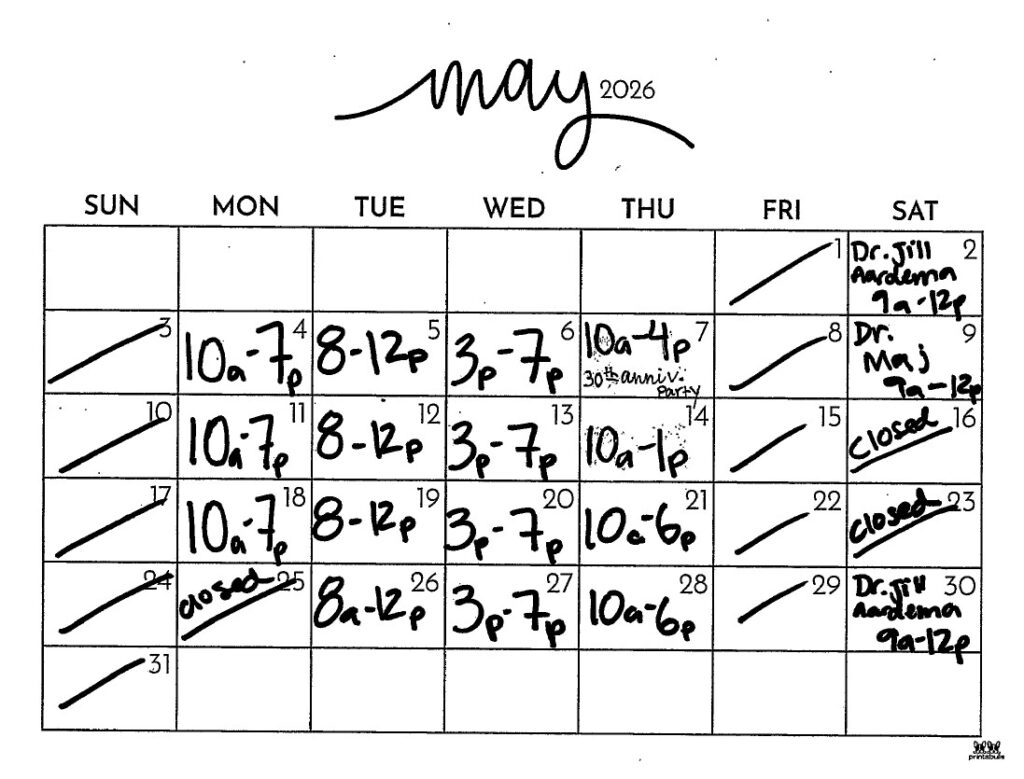 may 2026
SUN MON TUE WED THU FRI SAT
1 Dr. Jill 2
Aardema
9a-12p
3 10a-7p 4 8-12p 5 3p-7p 6 10a-4p 7 8 Dr. 9
30th anniv. Maj
party 9a-12p
10 10a-7p 11 8-12p 12 3p-7p 13 10a-1p 14 15 closed 16
17 10a-7p 18 8-12p 19 3p-7p 20 10a-6p 21 22 closed 23
24 closed 25 8a-12p 26 3p-7p 27 10a-6p 28 29 Dr. Jill 30
Aardema
9a-12p
31
printabulls